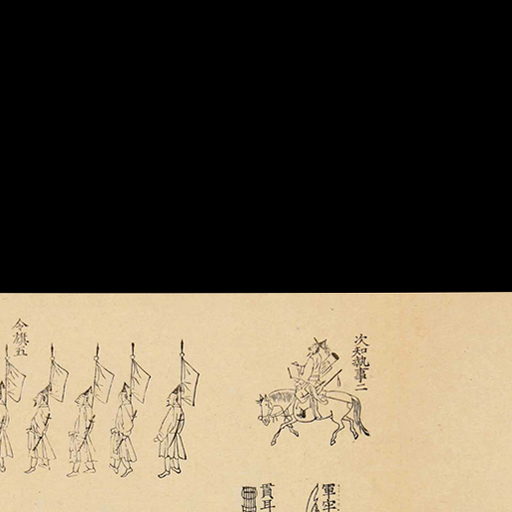 次知執事二
令旗五
軍牢
貫耳